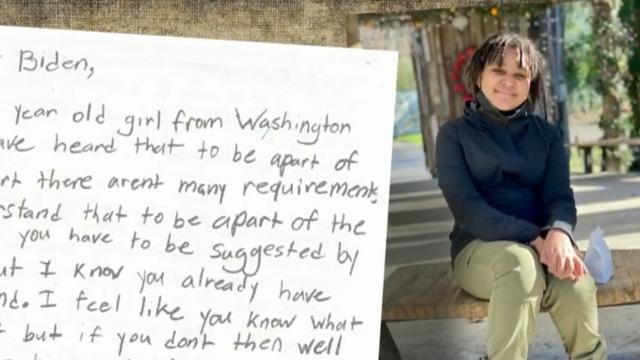 Biden,
year old girl from Washington
ave heard that to be apart of
rt there arent many requirements
rstand that to be apart of the
you have to be suggested by
ut I know you already have
nd. I feel like you know what
but if you dont then well